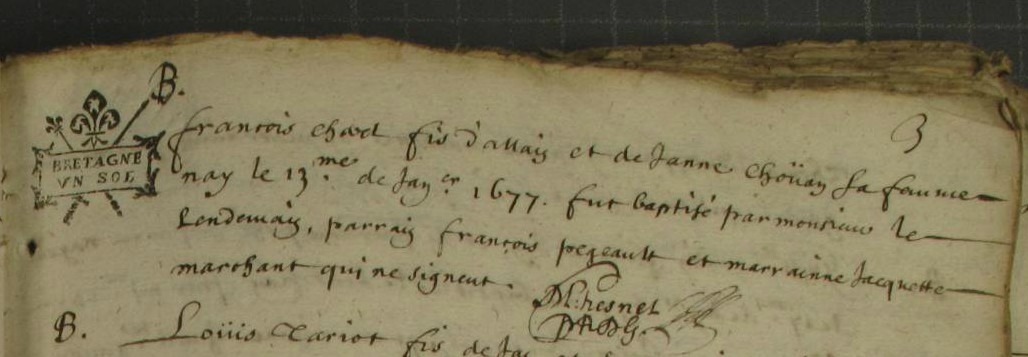 B.
BRETAGNE
VN SOL
3
françois chœl fis d'allaiy et de Janne choüay sa femme
nay le 13.me de Jan.er 1677. fut baptisé par monsieur le
Lendemaiy, parraiy françois pegeault et marrainne Jacquette
marchant qui ne signent.
M: hesnel
B. Loüis Tariot fis de Jac